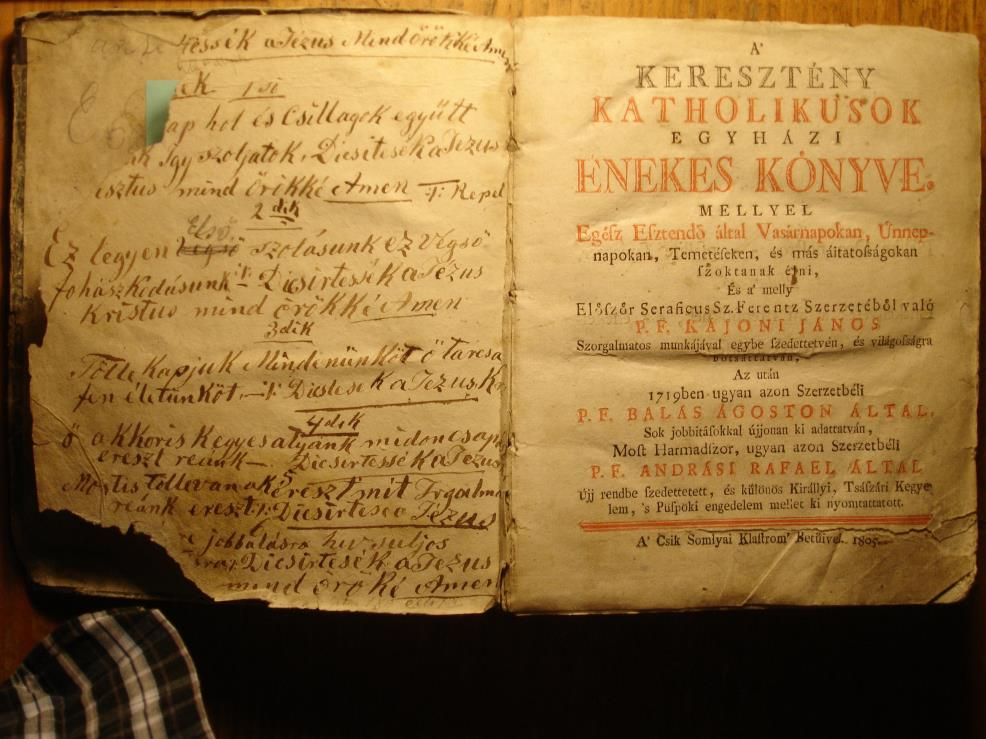 tessék a Jézus Mind örökké Ame
ek 1 ső
ap hol és Csillagok együtt
ak így szoljatok, Dicsitesék a Jezus
isztus mind örikké Amen Repel
2 dik
Első
Ez legyen szolásunk ez Végső
fohászkodásunk Dicsirtesék a Jézus
Kristus mind örökké Amen
3dik
Tölle Kapjuk Mindenünköt ő tarcsa
fen életünköt, Dicslese K a Jezus Kr
4dik
ő akkoris Kegyes atyánk midon csapa
ereszt reánk Dicsirtessék a Jezus
ereszt mit Irgalma
reánk ereszt Dicsirtesea Jezus
jobbulásra hiv suljos
Dicsirtesék a Jezus
mind öröké Amen
A'
KERESZTÉNY
KATHOLIKUSOK
EGYHÁZI
ÉNEKES KÖNYVE.
MELLYEL
Egéſz Eſztendő által Vasárnapokan, Ünnep-
napokan, Temetéſeken, és más áitatoſságokan
ſzoktanak élni,
És a' melly
Elöſzör Seraficus Sz. Ferentz Szerzetéből való
P. F. KÁJONI JÁNOS
Szorgalmatos munkájával egybe ſzedettetvén, és világoſságra
botsáttatván,
Az után
1719ben ugyan azon Szerzetbéli
P. F. BALÁS ÁGOSTON ÁLTAL,
Sok jobbitáſokkal újjonan ki adattatván,
Moſt Harmadſzor, ugyan azon Szerzetbéli
P. F. ANDRÁSI RAFAEL ÁLTAL
Újj rendbe ſzedettetett, és különös Királlyi, Tsáſzári Kegye
lem, 's Püſpöki engedelem mellet ki nyomtattatott.
A' Csik Somlyai Klaſtrom' Betűivel. 1805.